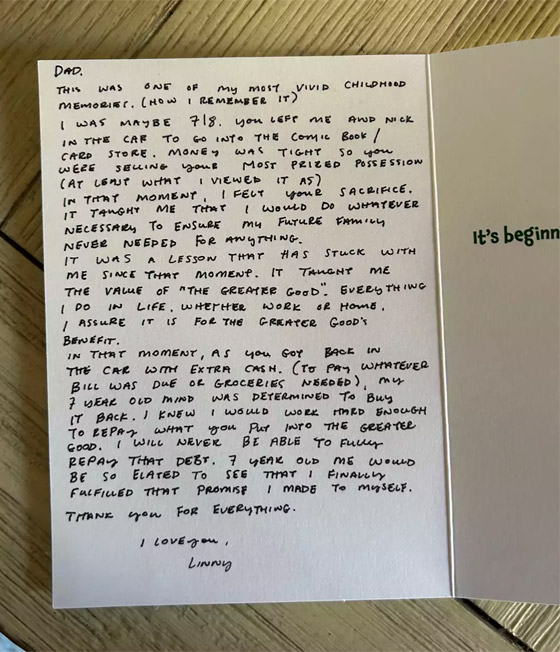 DAD.
THIS WAS ONE OF MY MOST VIVID CHILDHOOD
MEMORIES. (HOW I REMEMBER IT)
I WAS MAYBE 7/8. YOU LEFT ME AND NICK
IN THE CAR TO GO INTO THE COMIC BOOK/
CARD STORE. MONEY WAS TIGHT SO YOU
WERE SELLING YOUR MOST PRIZED POSSESSION
(AT LEAST WHAT I VIEWED IT AS)
IN THAT MOMENT, I FELT YOUR SACRIFICE.
IT TAUGHT ME THAT I WOULD DO WHATEVER
NECESSARY TO ENSURE MY FUTURE FAMILY
NEVER NEEDED FOR ANYTHING.
IT WAS A LESSON THAT HAS STUCK WITH
ME SINCE THAT MOMENT. IT TAUGHT ME
THE VALUE OF "THE GREATER GOOD". EVERYTHING
I DO IN LIFE, WHETHER WORK OR HOME,
I ASSURE IT IS FOR THE GREATER GOOD'S
BENEFIT.
IN THAT MOMENT, AS YOU GOT BACK IN
THE CAR WITH EXTRA CASH. (TO PAY WHATEVER
BILL WAS DUE OR GROCERIES NEEDED), MY
7 YEAR OLD MIND WAS DETERMINED TO BUY
IT BACK. I KNEW I WOULD WORK HARD ENOUGH
TO REPAY WHAT YOU PUT INTO THE GREATER
GOOD. I WILL NEVER BE ABLE TO FULLY
REPAY THAT DEBT. 7 YEAR OLD ME WOULD
BE SO ELATED TO SEE THAT I FINALLY
FULFILLED THAT PROMISE I MADE TO MYSELF.
THANK YOU FOR EVERYTHING.
I LOVE YOU,
LINNY
It's beginn